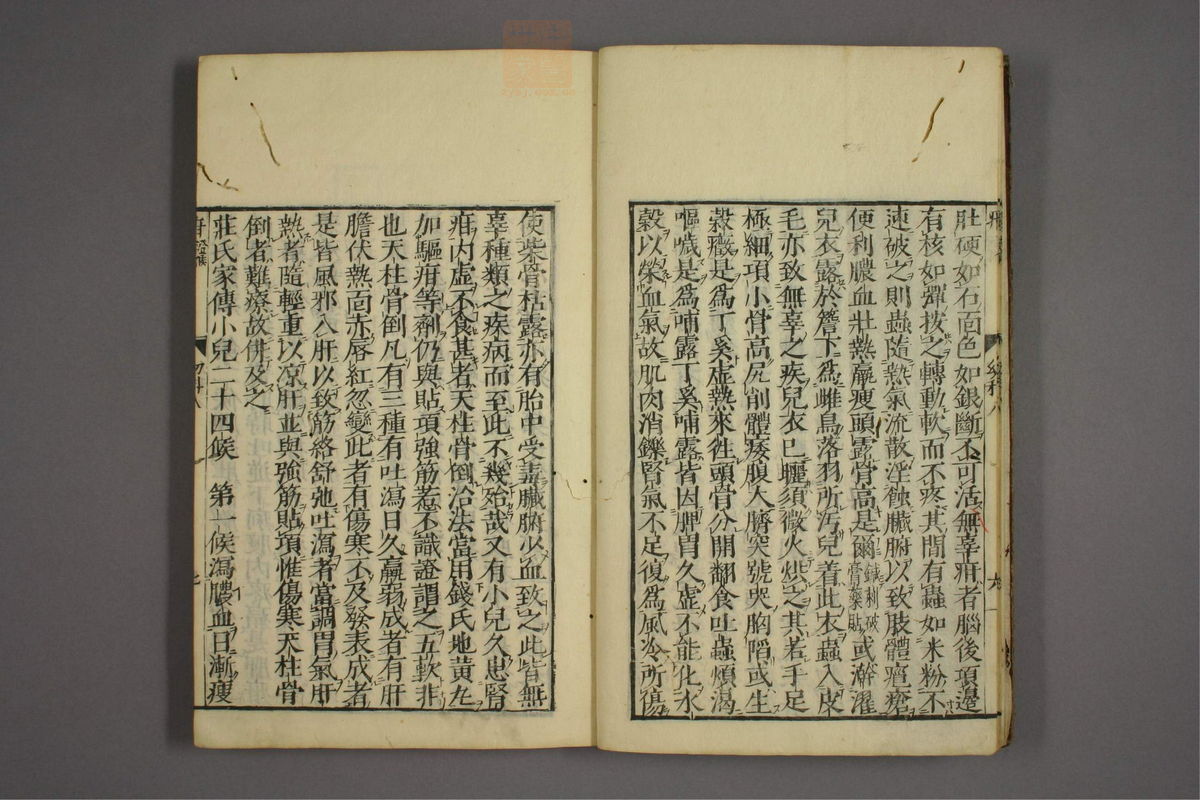 肚硬如石面色如銀斷不可活無辜疳者腦後項邊
有核如彈按之轉動軟而不疼其間有蟲如米粉不
速破之則蟲隨熱氣流散淫蝕臟腑以致肢體癰瘡
便利膿血壯熱羸瘦頭露骨高是爾鍼刺破膏藥貼或澣濯
兒衣露於簷下爲雌鳥落羽所汚兒着此衣蟲入皮
毛亦致無辜之疾兒衣已曬須微火烘之其若手足
極細項小骨高尻削體痿腹大臍突號哭胸陷或生
穀癥是爲丁奚虛熱來徃頭骨分開翻食吐蟲煩渴
嘔噦是爲哺露丁奚哺露皆因脾胃久虛不能化水
穀以榮血氣故肌肉消鑠腎氣不足復爲風冷所傷
使柴骨枯露亦有胎中受毒臟腑少血致之此皆無
辜種類之疾病而至此不幾殆哉又有小兒久患腎
疳内虛不食甚者天柱骨倒治法當用錢氏地黄左
加驅疳等劑仍與貼項強筋惹不識證謂之五軟非
也天柱骨倒凡有三種有吐瀉日久羸弱成者有肝
膽伏熱面赤唇紅忽變此者有傷寒不及發表成者
是皆風邪入肝以致筋絡舒弛吐瀉者當調胃氣肝
熱者隨輕重以凉肝並與強筋貼項惟傷寒天柱骨
倒者難療故倂及之
莊氏家傳小兒二十四候　第一候瀉膿血日漸瘦
疳 證候
幼科八
七
幼科八
六